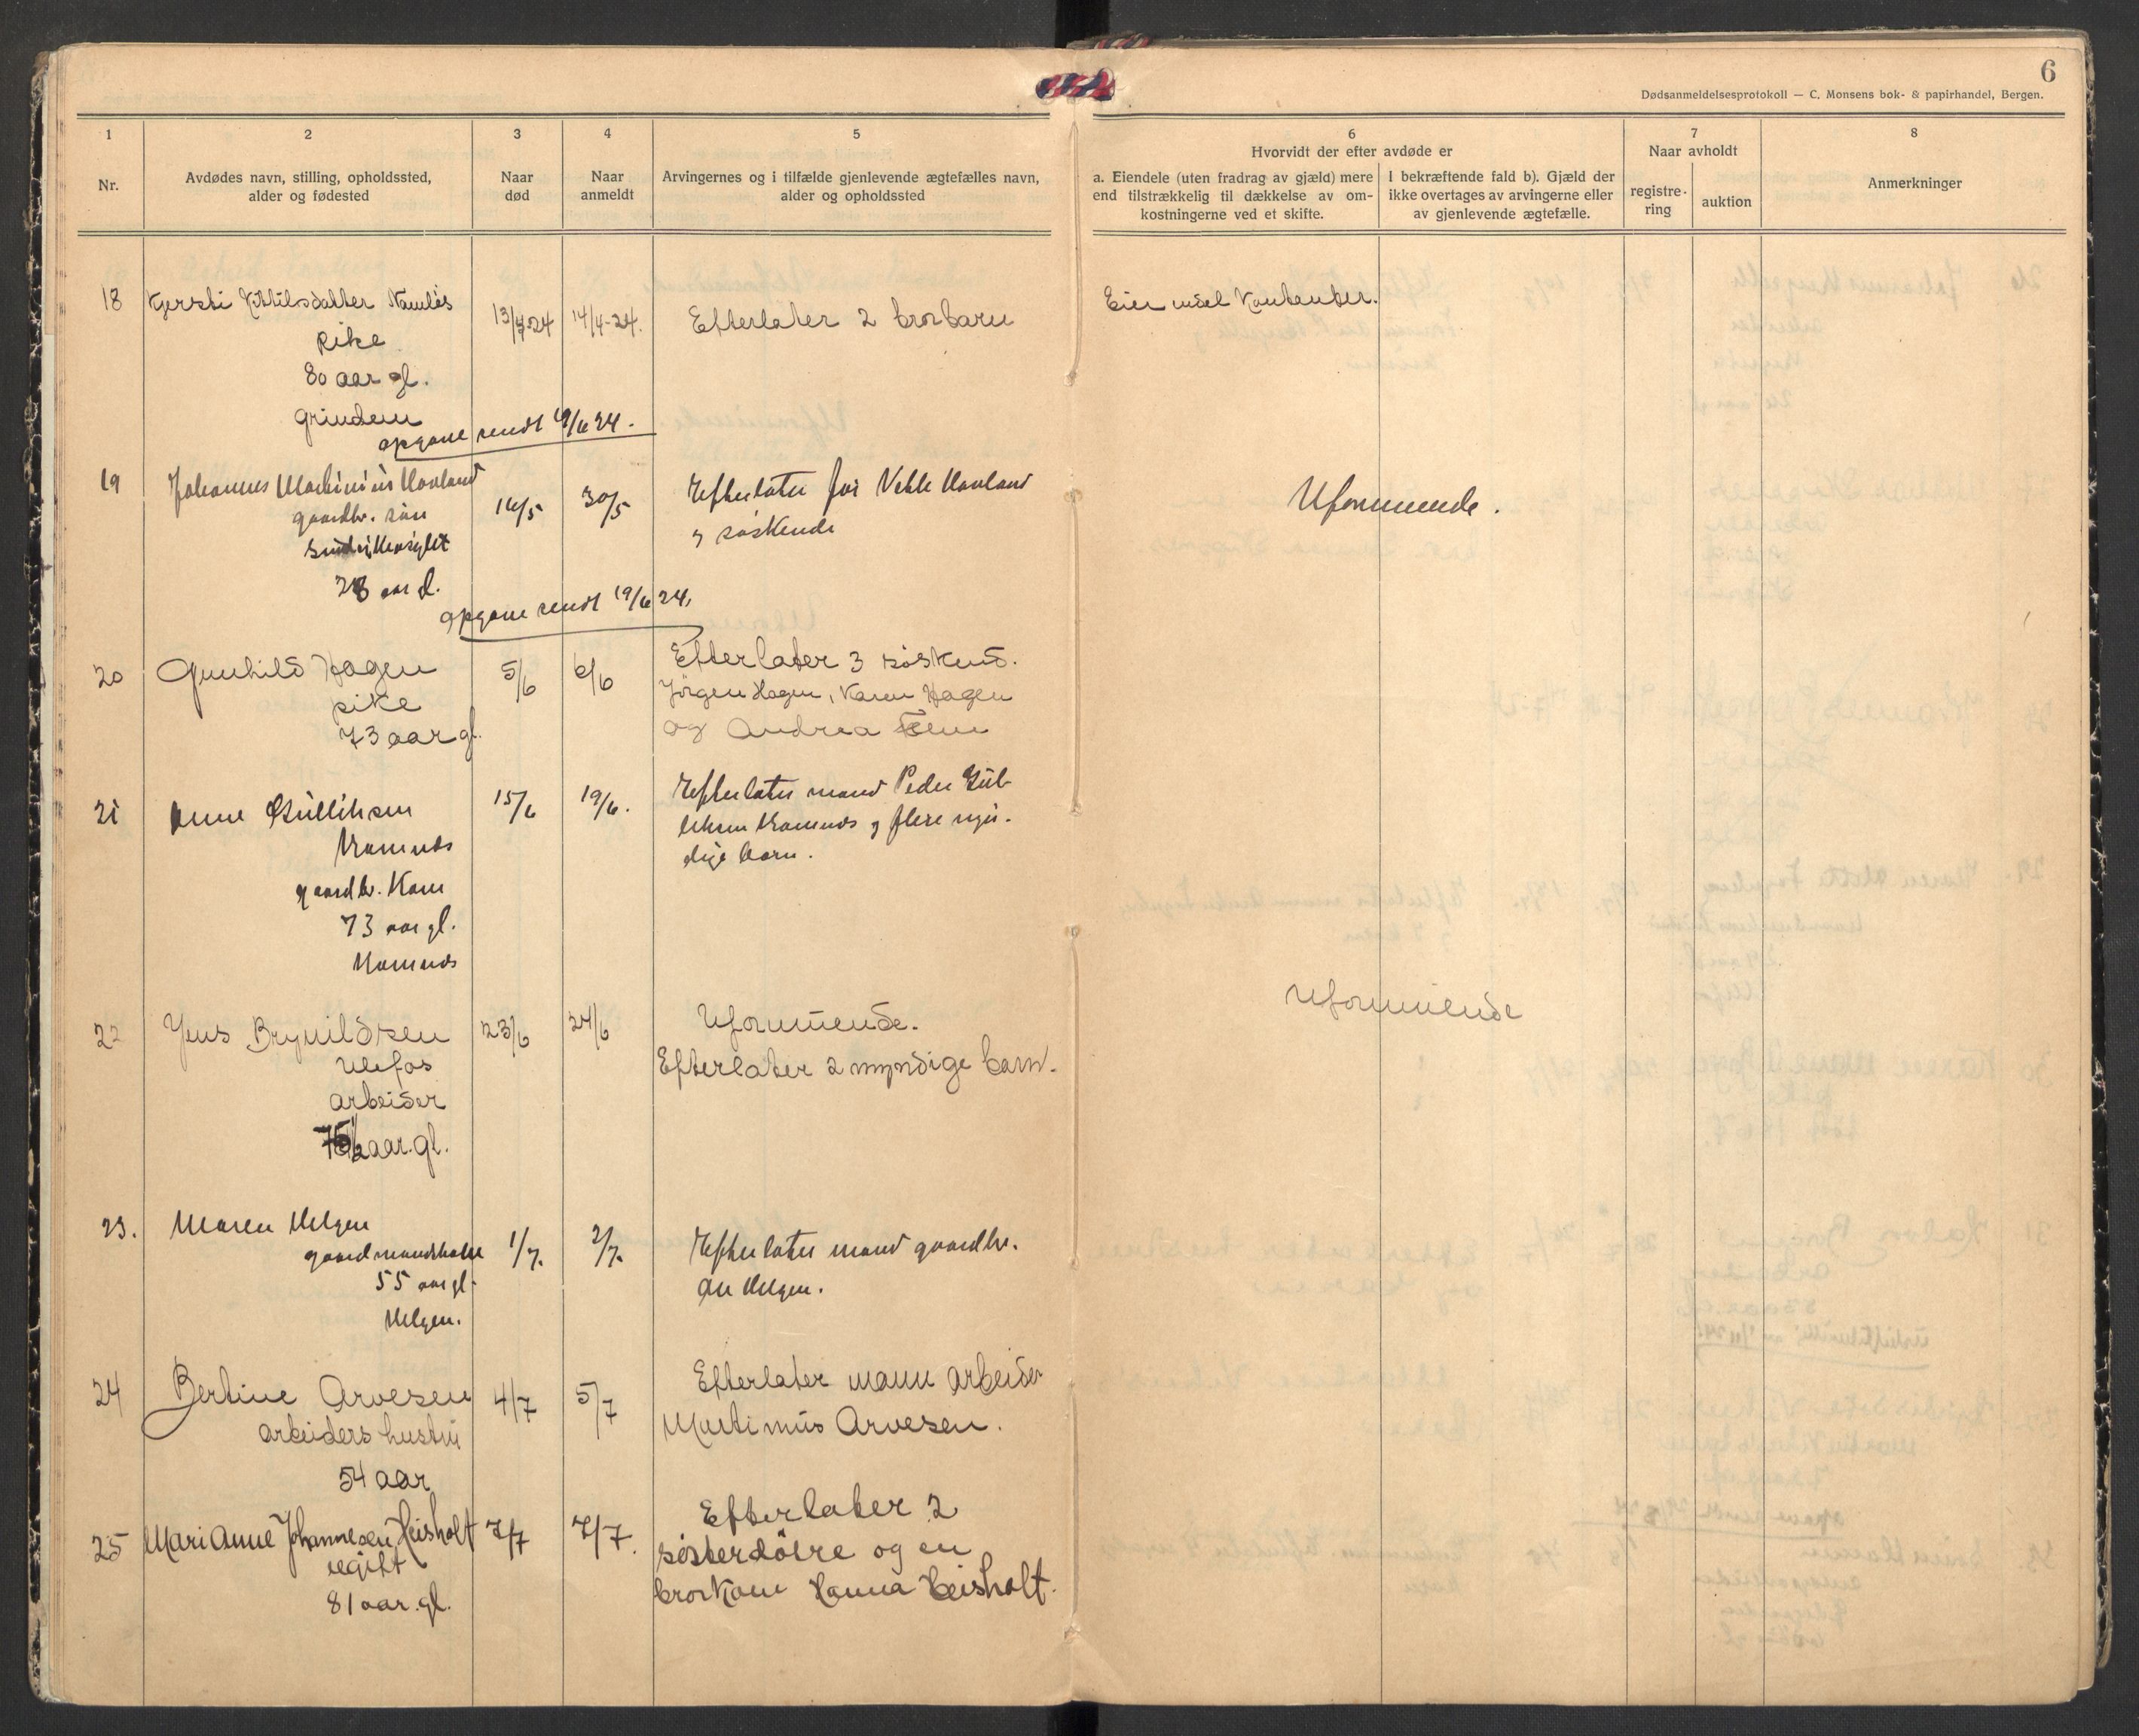 6
Dødsanmeldelsesprotokoll — C. Monsens bok- & papirhandel, Bergen.
1
2
3
4
5
6
7
8
Nr.
Avdødes navn, stilling, opholdssted,
alder og fødested
Naar
død
Naar
anmeldt
Arvingernes og i tilfælde gjenlevende ægtefælles navn,
alder og opholdssted
Hvorvidt der efter avdøde er
a. Eiendele (uten fradrag av gjæld) mere
end tilstrækkelig til dækkelse av om-
kostningerne ved et skifte.
I bekræftende fald b). Gjæld der
ikke overtages av arvingerne eller
av gjenlevende ægtefælle.
Naar avholdt
registre-
ring
auktion
Anmerkninger
18 Kjersti Kittilsdatter Namløs 13/4-24 14/4-24. Efterlater 2 brorbarn
pike
80 aar gl.
Grindem
opgave sendt 19/6 24.
19 Johannes Hovland 16/5 30/5 Efterlater far Hovland
gaardbr. søn
og søskende
Uformuende.
28 aar gl.
opgave sendt 19/6 24.
20 Gunhild Hagen 5/6 6/6 Efterlater 3 søskend.
pike
Jörgen Hagen, Karen Hagen
73 aar gl.
og Andrea
21 Anne 15/6 19/6. Efterlater mand Peder
og flere myn-
dige barn.
gaardbr. Kone
73 aar gl.
22 Jens Brynildsen 23/6 24/6 Uformuende.
Ulefos
Efterlater 2 myndige barn.
Uformuende
arbeider
aar. gl.
23. Maren Helgen 1/7. 2/7. Efterlater mand gaardbr.
gaardmandskone
Ole Helgen.
55 aar gl.
Helgen.
24 Bertine Arvesen 4/7 5/7 Efterlater mann arbeider
arbeiders hustru
Martinius Arvesen.
54 aar
25 Mari Anne Johannesen Heisholt 7/7 7/7. Efterlater 2
ugift
søsterdøtre og en
81 aar. gl.
brorkone Hanna Heisholt.